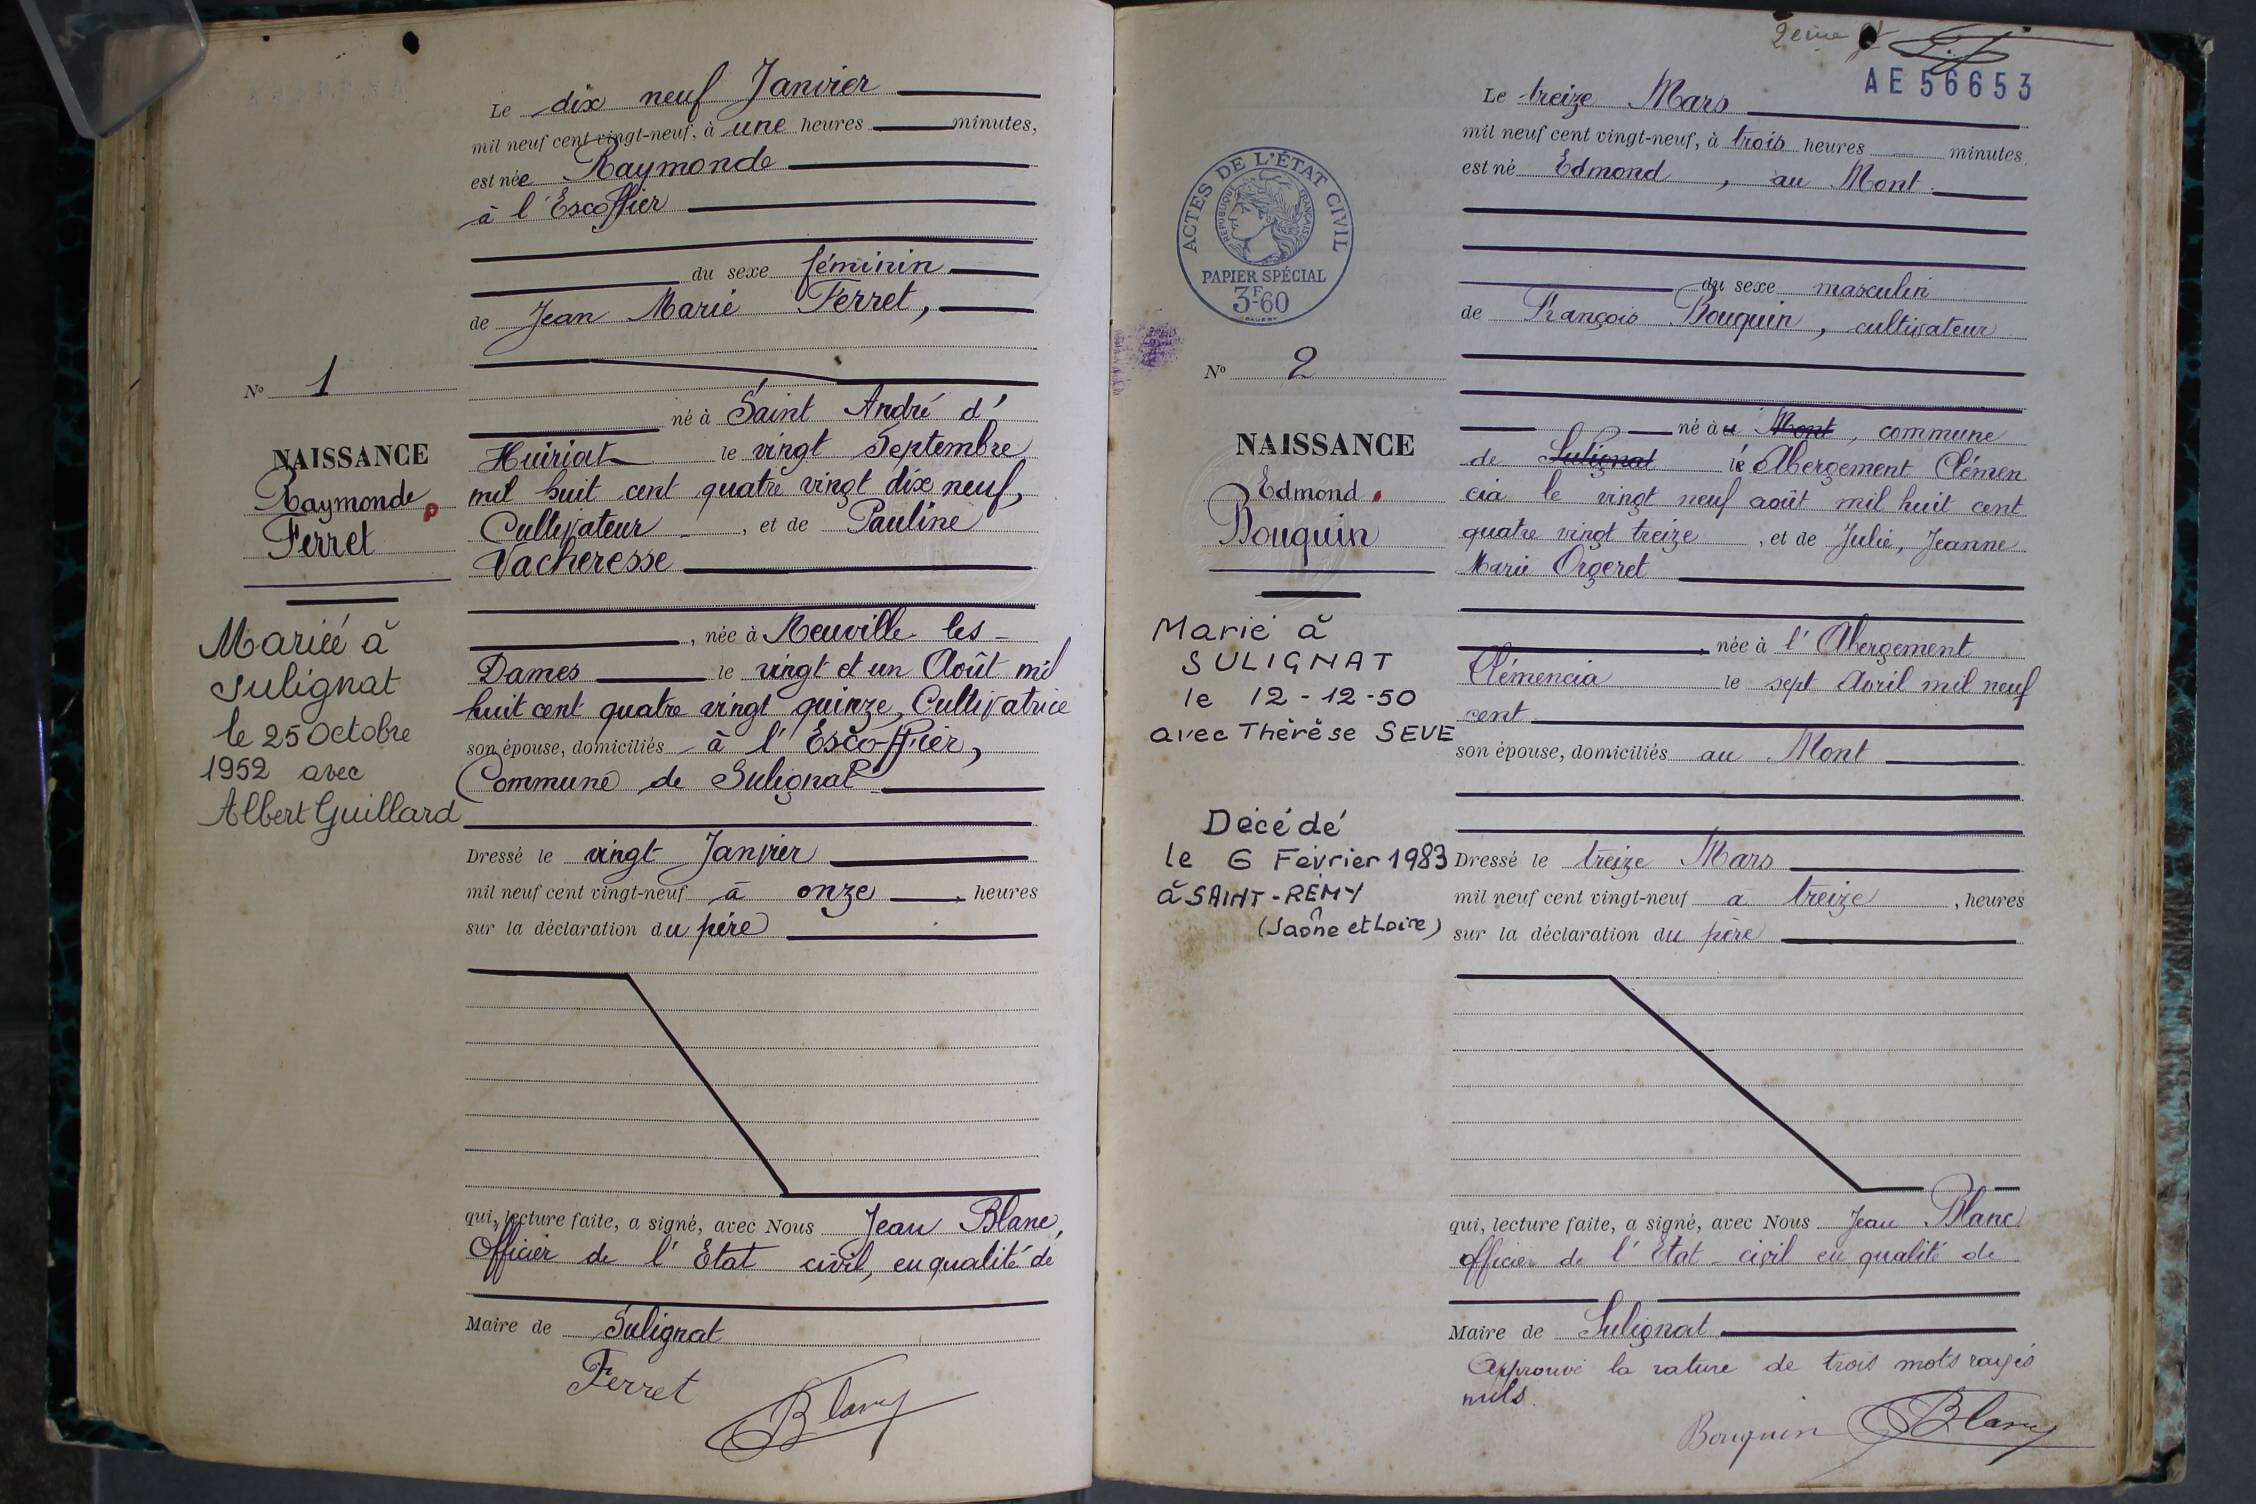 Le dix neuf Janvier
mil neuf cent vingt-neuf, à une heures minutes,
est née Raymonde
à l'Escoffier
du sexe féminin
de Jean Marie Ferret,
né à Saint André d'
Huiriat le vingt Septembre
mil huit cent quatre vingt dix neuf,
Cultivateur, et de Pauline
Vacheresse
, née à Neuville les-
Dames le vingt et un Août mil
huit cent quatre vingt quinze, Cultivatrice
son épouse, domiciliés à l'Escoffier,
Commune de Sulignat
Dressé le vingt Janvier
mil neuf cent vingt-neuf à onze, heures
sur la déclaration du père
qui, lecture faite, a signé, avec Nous Jean Blanc,
Officier de l'Etat civil, en qualité de
Maire de Sulignat
Ferret
Blanc
No 1
NAISSANCE
Raymonde
Ferret
Mariée à
Sulignat
le 25 Octobre
1952 avec
Albert Guillard
2ème
AE 56653
Le treize Mars
mil neuf cent vingt-neuf, à trois heures minutes,
est né Edmond, au Mont.
du sexe masculin
de François Bouquin, cultivateur
né au Mont, commune
de Sulignat à l'Abergement Clémen
cia le vingt neuf août mil huit cent
quatre vingt treize, et de Julie, Jeanne
Marie Orgeret
, née à l'Abergement
Clémencia le sept Avril mil neuf
cent
son épouse, domiciliés au Mont
Dressé le treize Mars
mil neuf cent vingt-neuf a treize, heures
sur la déclaration du père
qui, lecture faite, a signé, avec Nous Jean Blanc
officier de l'Etat civil en qualité de
Maire de Sulignat
Approuvé la rature de trois mots rayés
nuls.
Bouquin Blanc
ACTES DE L'ÉTAT CIVIL
RÉPUBLIQUE FRANÇAISE
PAPIER SPÉCIAL
3F-60
No 2
NAISSANCE
Edmond
Bouquin
Marié à
SULIGNAT
le 12-12-50
avec Thérèse SEVE
Décédé
le 6 Février 1983
à SAINT-RÉMY
(Saône et Loire)